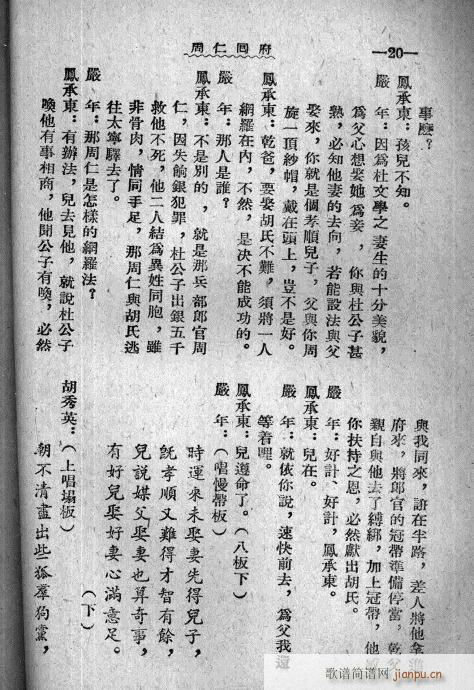 周仁回府
—20—
事麽？
鳳承東：孩兒不知。
嚴　年：因爲杜文學之妻生的十分美貌，
爲父心想娶她爲妾，你與杜公子甚
熟，必知他妻的去向，若能設法與父
娶來，你就是個孝順兒子，父與你周
旋一頂紗帽，戴在頭上，豈不是好。
鳳承東：乾爸，要娶胡氏不難，須將一人
網羅在內，不然，是决不能成功的。
嚴　年：那人是誰？
鳳承東：不是別的，就是那兵部郎官周
仁，因失餉銀犯罪，杜公子出銀五千
救他不死，他二人結爲異姓同胞，雖
非骨肉，情同手足，那周仁與胡氏逃
往太寧驛去了。
嚴　年：那周仁是怎樣的網羅法？
鳳承東：有辦法，兒去見他，就說杜公子
喚他有事相商，他聞公子有喚，必然
與我同來，誑在半路，差人將他拿進
府來，將郎官的冠帶準備停當，乾父
親自與他去了縛綁，加上冠帶，他
你扶持之恩，必然獻出胡氏。
嚴　年：好計，好計，鳳承東。
鳳承東：兒在。
嚴　年：就依你說，速快前去，爲父我還
等着哩。
鳳承東：兒遵命了。（八板下）
嚴　年：（唱慢帶板）
時運來未娶妻先得兒子，
旣孝順又難得才智有餘，
兒說媒父娶妻也算奇事，
有好兒娶好妻心滿意足。
（下）
胡秀英：（上唱塌板）
朝不清盡出些狐羣狗黨，
歌谱简谱网
jianpu.cn